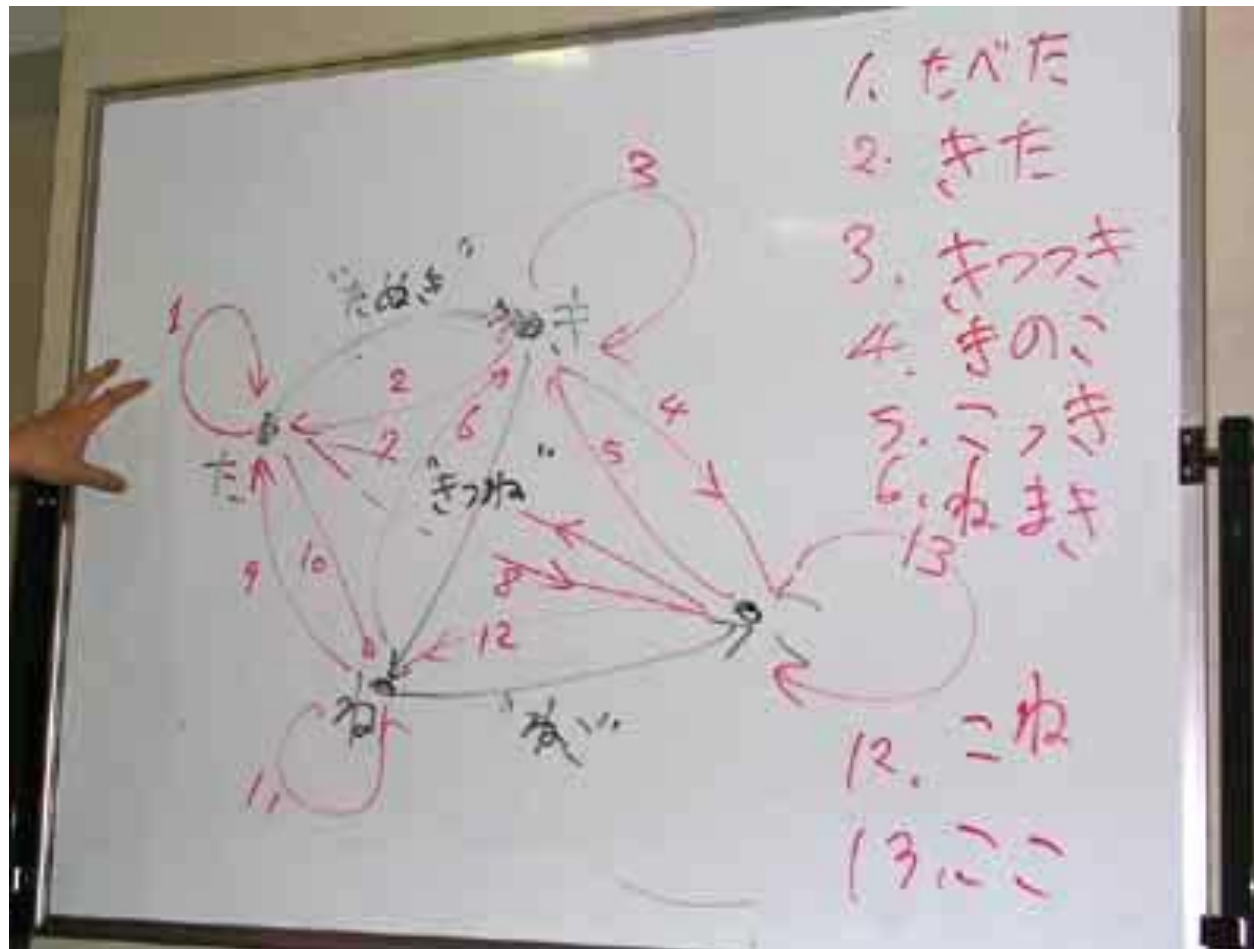 1. たべた
2. きた
3. きつつき
4. きのこ
5. こっき
6. ねまき
12. こね
13. ここ
3
"たぬき"
き
1
2
4
6
5
7
た
"きつね"
13
9
10
8
12
こ
ね
11